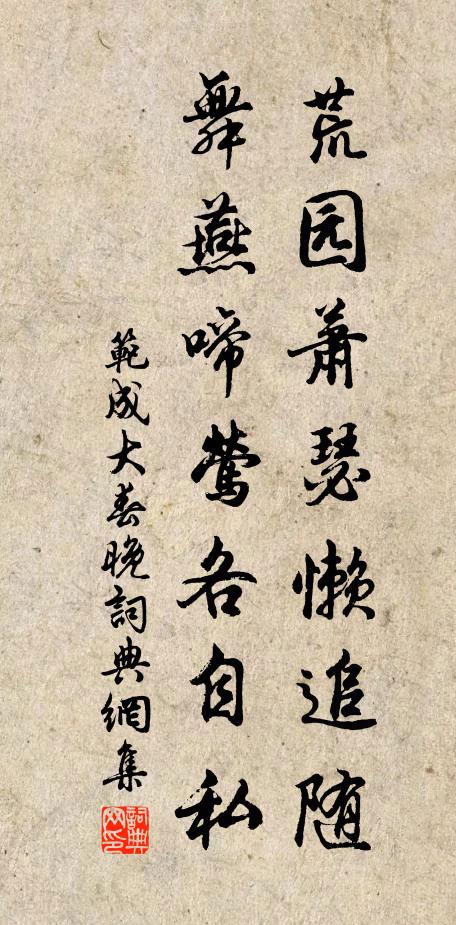 荒园萧瑟懒追随
舞燕啼莺各自私
範成大春晚詞典網集
詞典网印